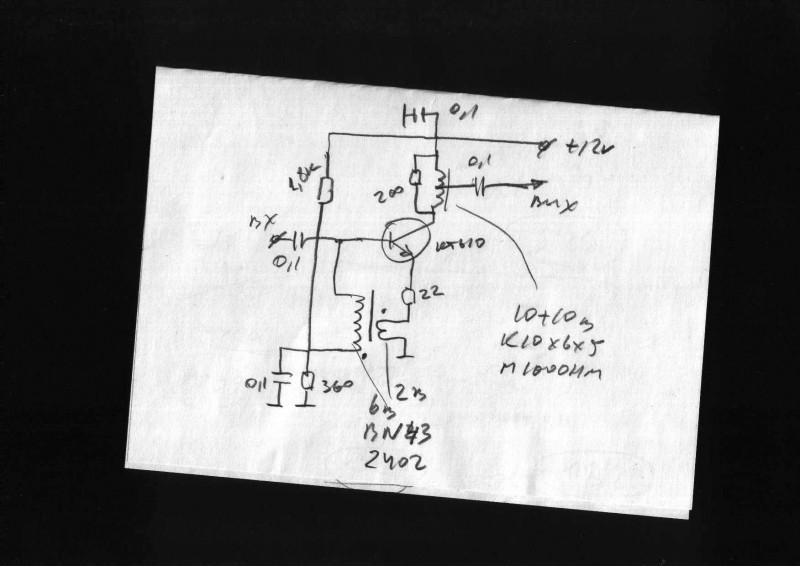 0,1
+12v
0,1
1,8к
200
вых
вх
0,1
кт610
22
10+10в
К10х6х5
М1000НМ
0,1
360
2в
6в
BN43
2402